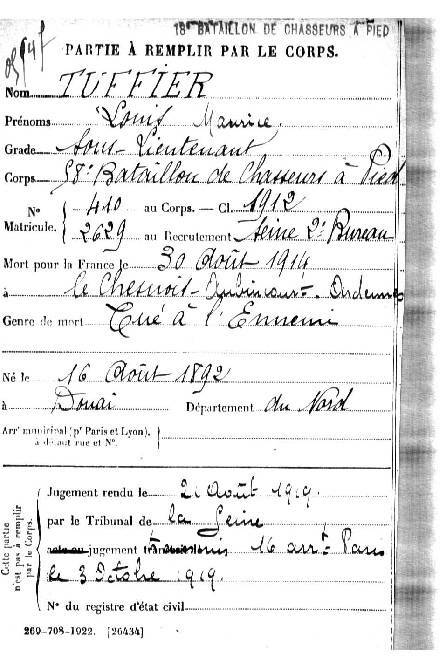 18e BATAILLON DE CHASSEURS A PIED
PARTIE À REMPLIR PAR LE CORPS.
Nom TUFFIER
Prénoms Louis Maurice
Grade Sous-Lieutenant
Corps 18e Bataillon de Chasseurs à Pied
No Matricule. 410 au Corps. — Cl. 1912
2629 au Recrutement Seine 2e Bureau
Mort pour la France le 30 Août 1914
à le Chesnois-Aubincourt. Ardennes
Genre de mort Tué à l'Ennemi
Né le 16 Août 1892
à Douai Département du Nord
Arrt municipal (pr Paris et Lyon),
à défaut rue et No.
Cette partie
n'est pas à remplir
par le Corps.
Jugement rendu le 2 Août 1919.
par le Tribunal de la Seine
acte ou jugement transcrit 16 arrt Paris
le 3 Octobre 1919.
No du registre d'état civil
269-708-1922. [26434]